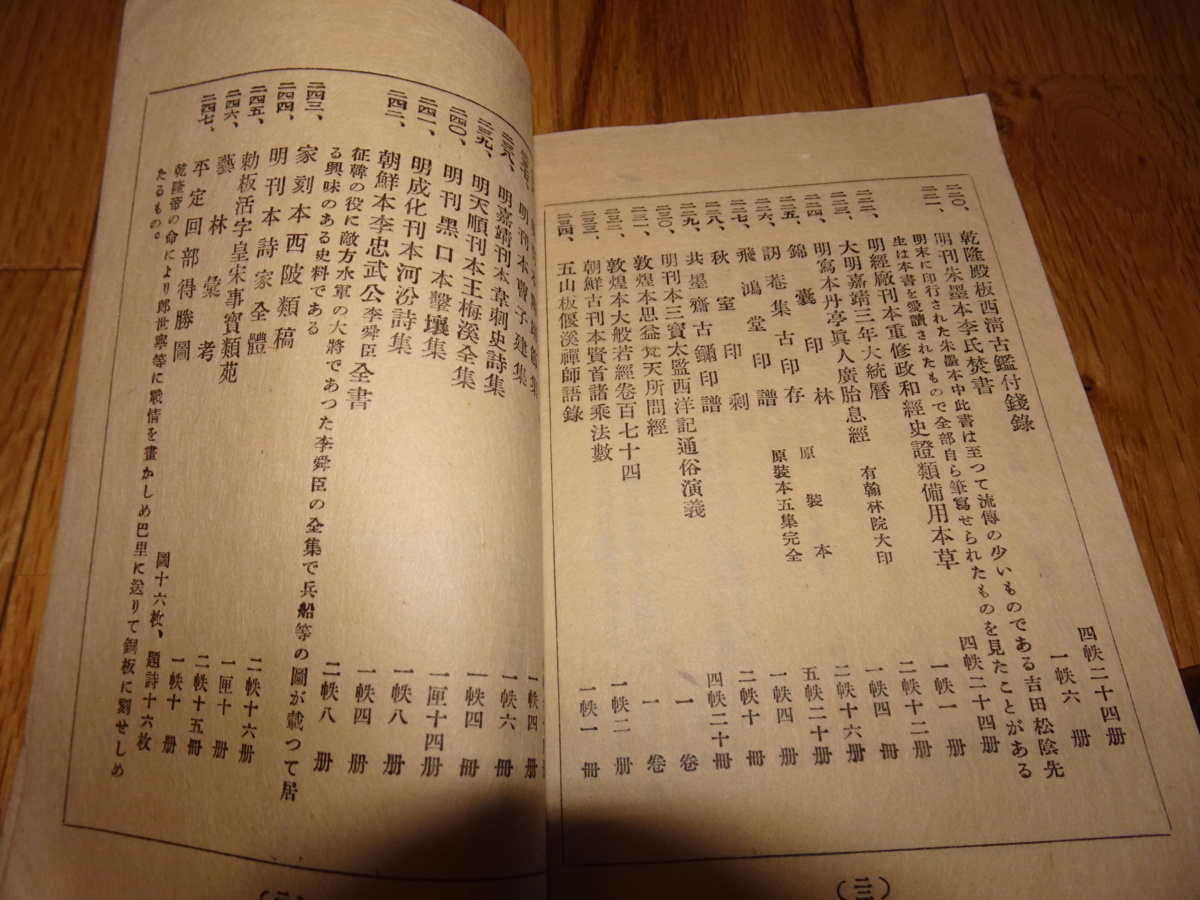 二二〇、 乾隆殿板西清古鑑付錢錄 四帙二十四册
二二一、 明刊朱墨本李氏焚書 一帙六册
明末に印行された朱墨本中此書は至つて流傳の少いものである吉田松陰先
生は本書を愛讀されたもので全部自ら筆寫せられたものを見たことがある
明經廠刊本重修政和經史證類備用本草 四帙二十四册
二二二、 大明嘉靖三年大統曆 有翰林院大印 一帙一册
二二三、 明寫本丹亭眞人廣胎息經 二帙十二册
二二四、 錦囊印林 原裝本 一帙四册
二二五、 訒菴集古印存 原裝本五集完全 二帙十六册
二二六、 飛鴻堂印譜 五帙二十册
二二七、 秋室印剩 一帙四册
二二八、 共墨齋古鉨印譜 二帙十册
二二九、 明刊本三寶太監西洋記通俗演義 四帙二十册
二三〇、 敦煌本思益梵天所問經 一卷
二三一、 敦煌本大般若經卷百七十四 一卷
二三二、 朝鮮古刊本賢首諸乘法數 一帙二册
二三四、 五山板偃溪禪師語錄 一帙一册
(二三)
明刊本賈子建集 一帙四册
二三八、 明嘉靖刊本韋刺史詩集 一帙六册
二三九、 明天順刊本王梅溪全集 一帙四册
二四〇、 明刊黑口本擊壤集 一匣十四册
二四一、 明成化刊本河汾詩集 一帙八册
二四二、 朝鮮本李忠武公李舜臣全書 一帙四册
征韓の役に敵方水軍の大將であつた李舜臣の全集で兵船等の圖が載つて居
る興味のある史料である
二四三、 家刻本西陂類稿 二帙八册
二四四、 明刊本詩家全體
二四五、 勅板活字皇宋事實類苑 二帙十六册
二四六、 藝林彙考 一匣十册
二四七、 平定回部得勝圖 二帙十五册
圖十六枚、題詩十六枚 一帙十册
乾隆帝の命により郎世寧等に戰情を畫かしめ巴里に送りて銅板に刻せしめ
たるもの。